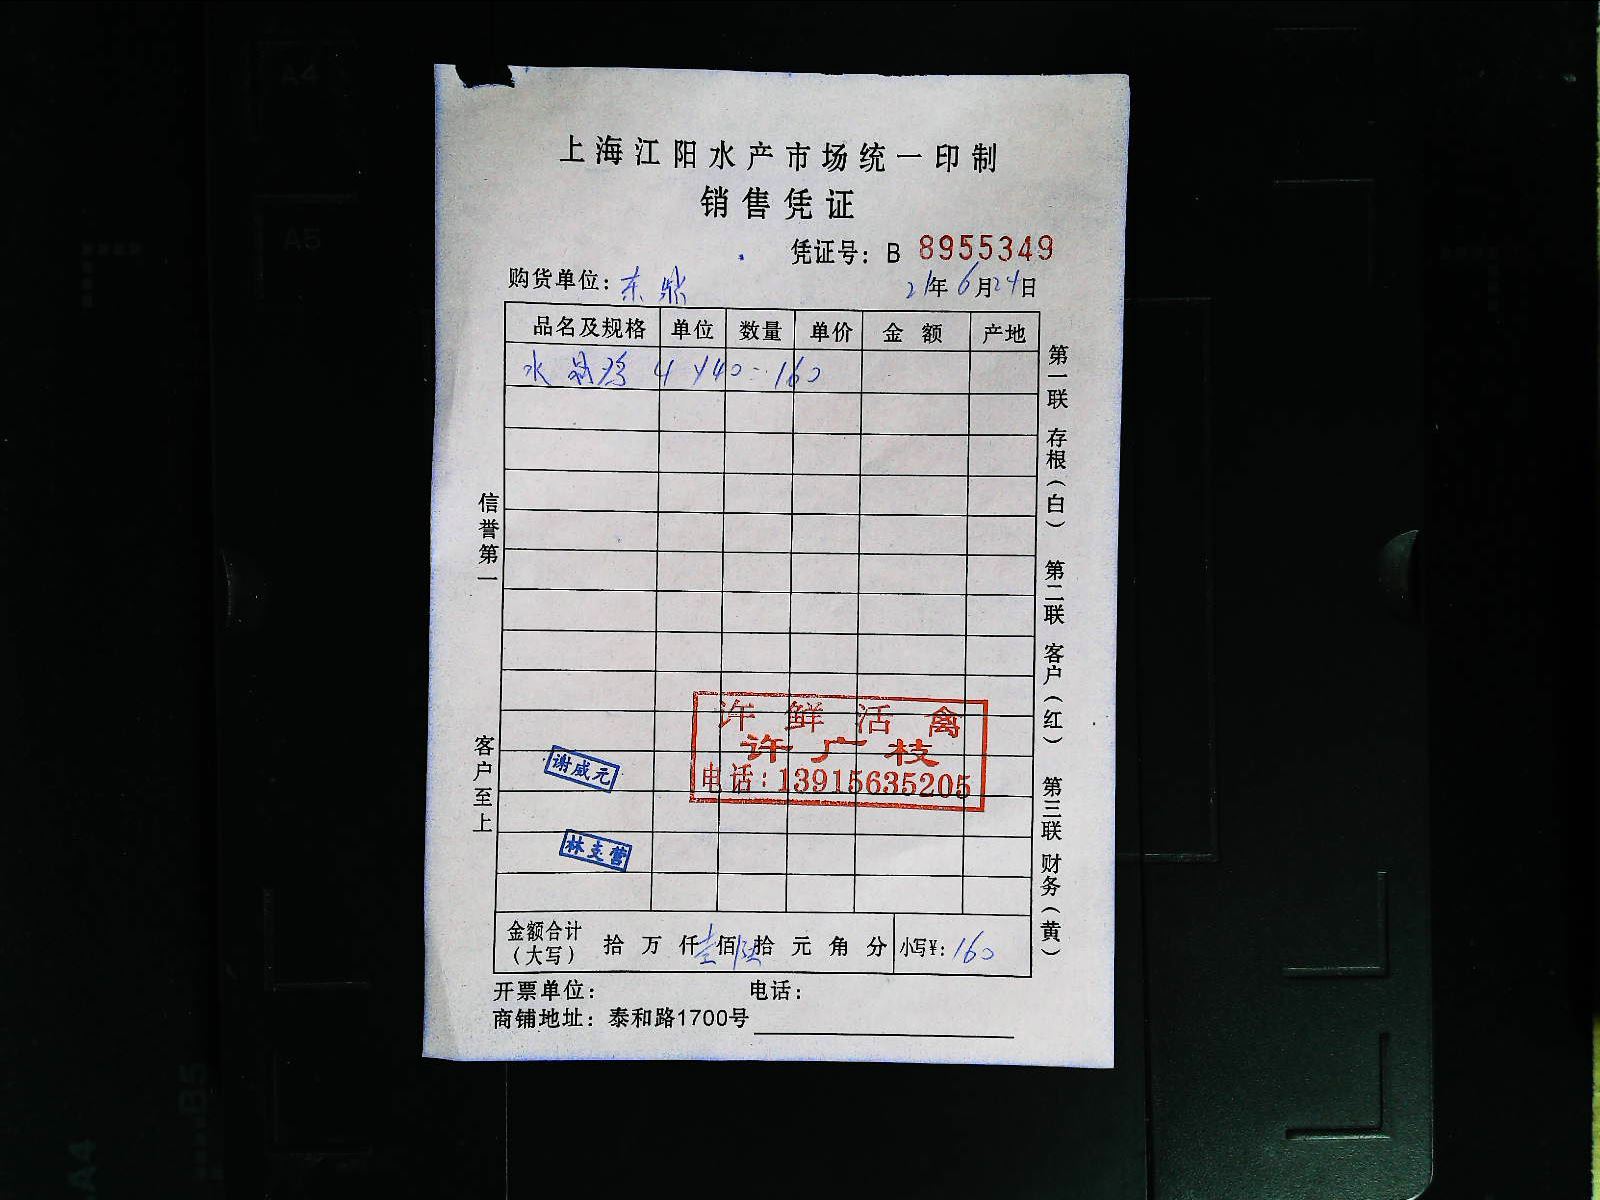 上海江阳水产市场统一印制
销售凭证
凭证号：B 8955349
购货单位：东鼎 21年6月24日
品名及规格 单位 数量 单价 金额 产地
水晶鸡 4 ×40=160
信誉第一
客户至上
第一联 存根（白） 第二联 客户（红） 第三联 财务（黄）
许鲜活禽
许广枝
电话：13915635205
谢威元
林支营
金额合计（大写） 拾万仟壹佰陆拾元角分 小写¥：160
开票单位： 电话：
商铺地址：泰和路1700号
A4
A5
B5
A4